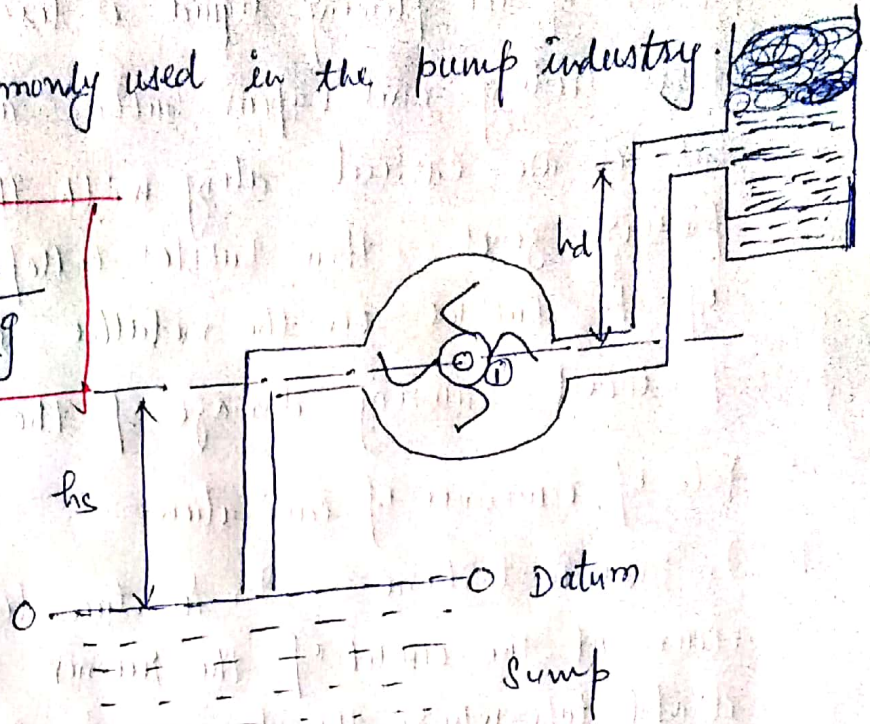 monly used in the pump industry.
hd
g
①
hs
O O Datum
Sump